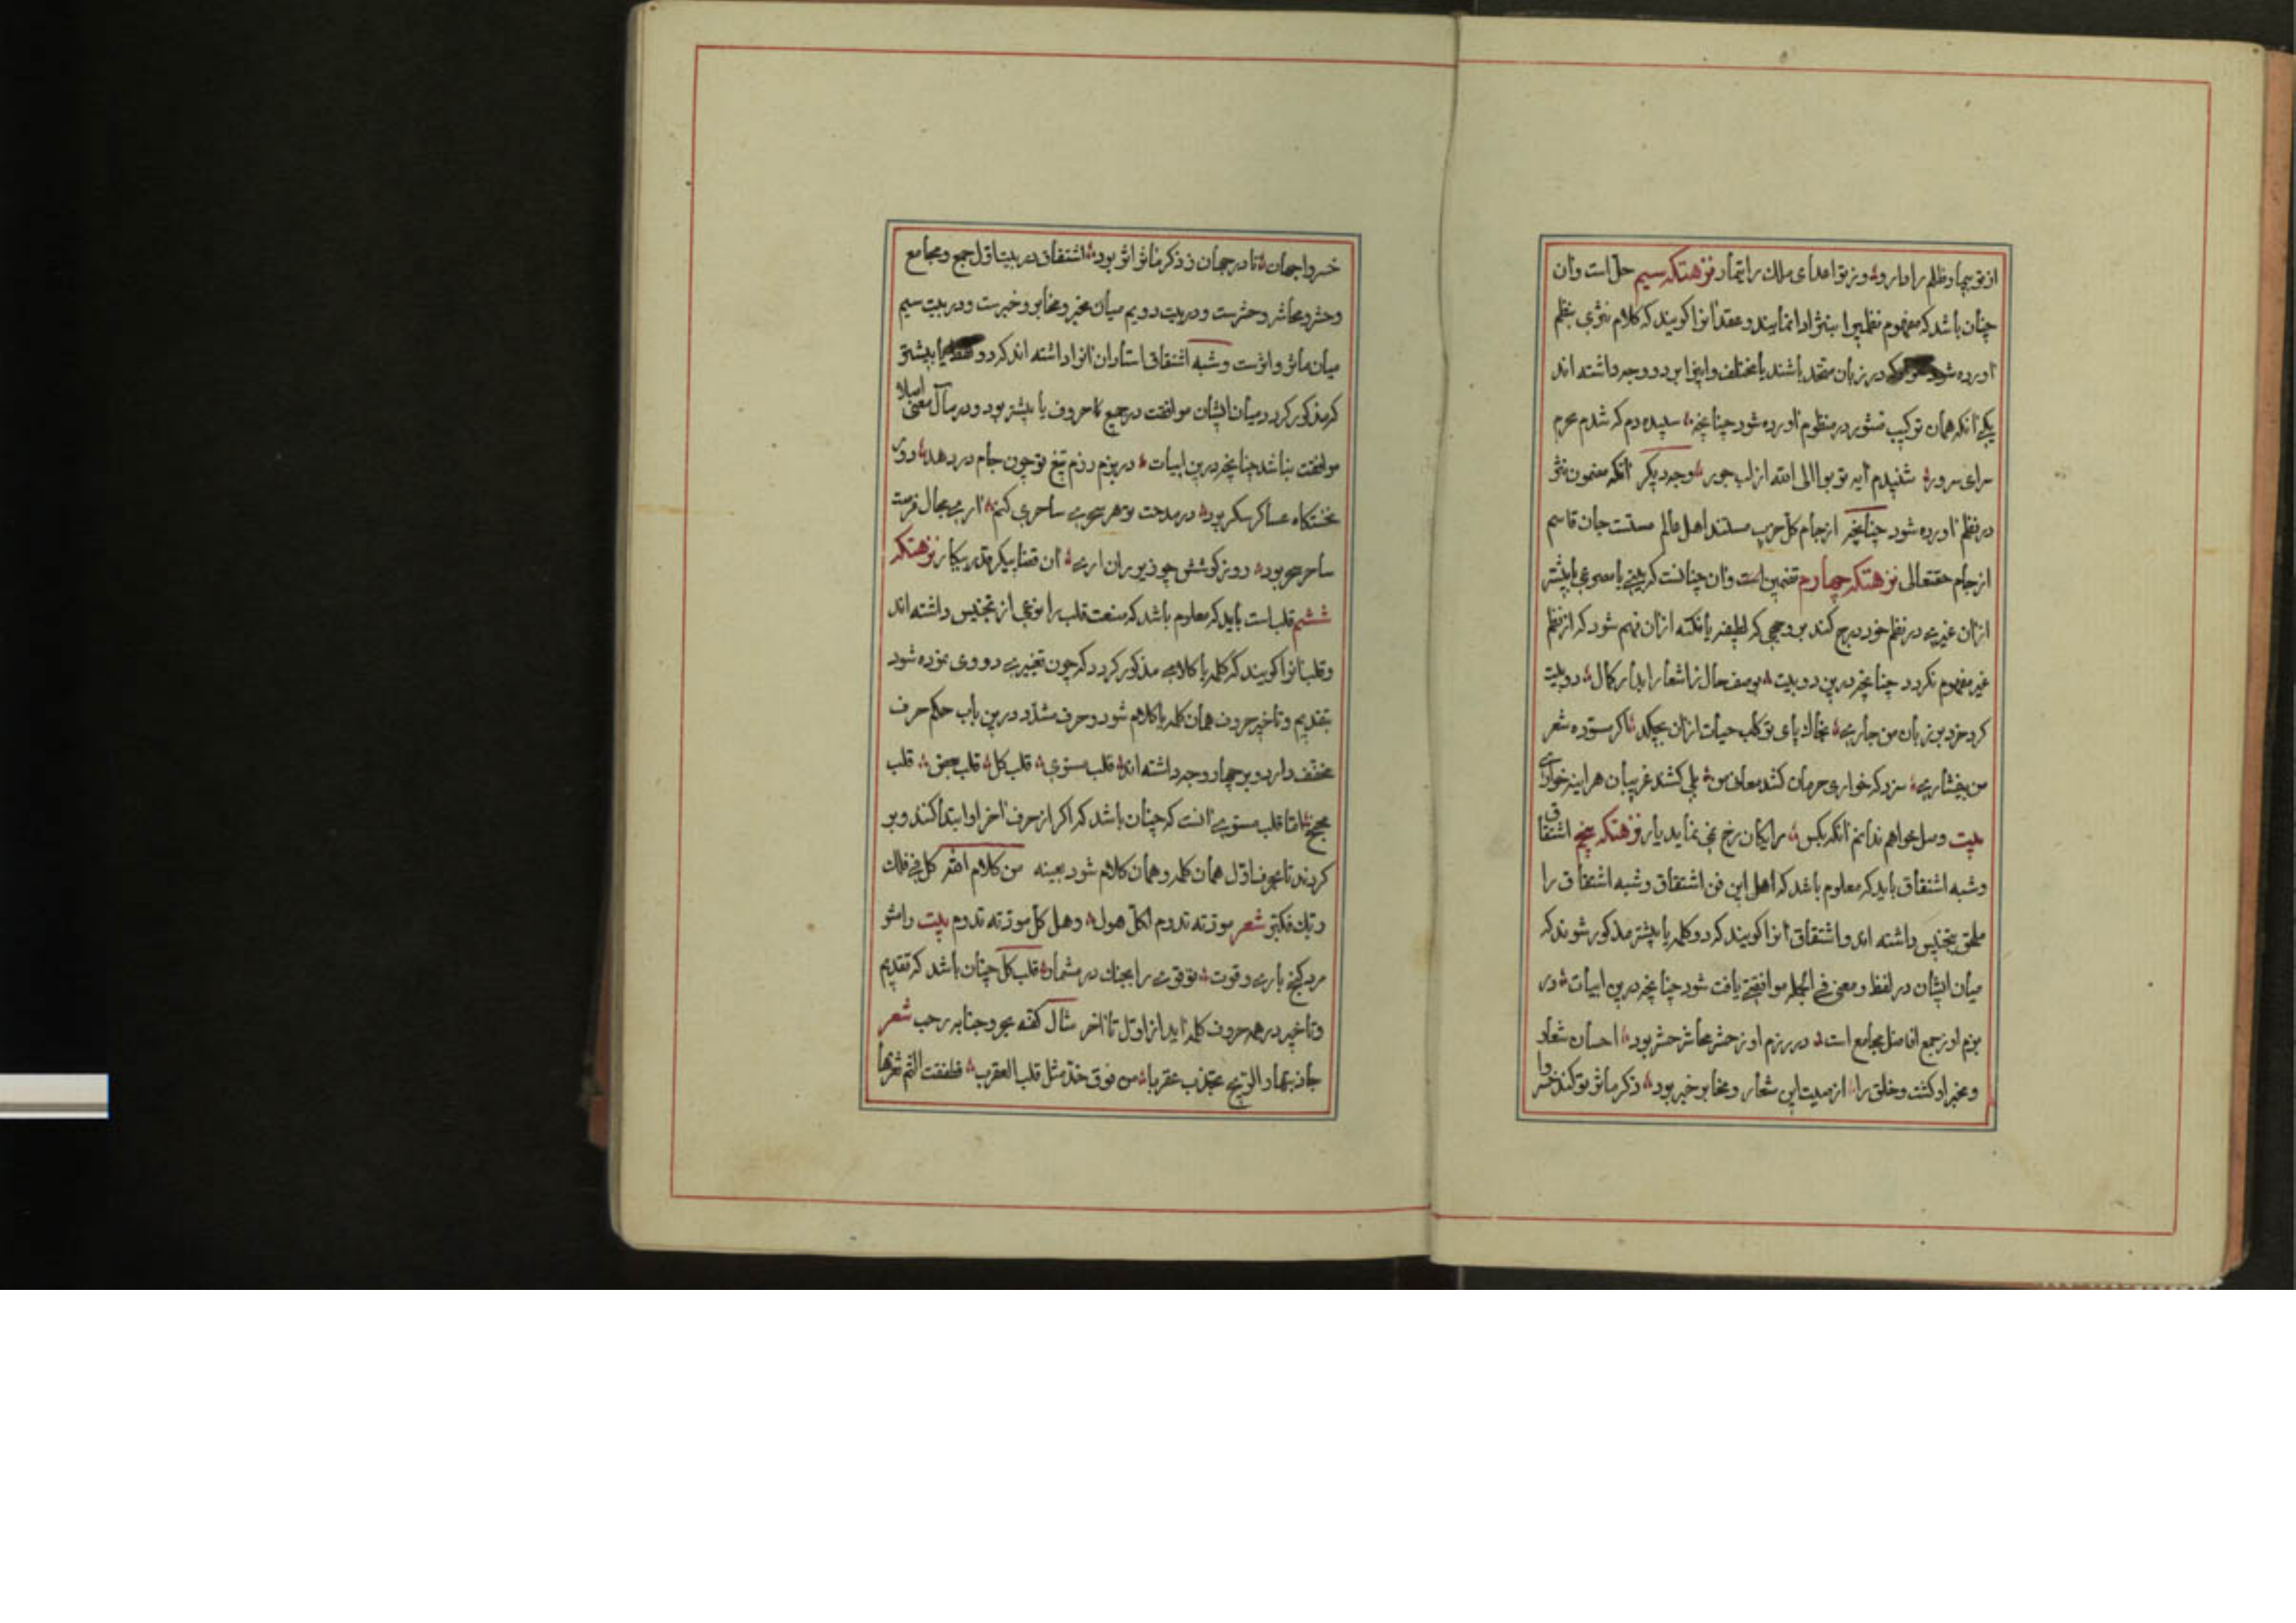 از تو بیچاره ظلم را دارو و ز تو اعدای ملک را تیمار نزهتکه سیم حل است و آن
چنان باشد که مفهوم نظمیرا بنثر ادا نمایند و عقد انرا کویند که کلام نثری بنظم
اورده شود در زبان متحد باشند یا مختلف و اینرا بر دو وجه داشته اند
یکی انکه همان ترکیب منثور در منظوم اورده شود چنانچه سپیده دم که شدم محرم
سرای سرور شنیدم ایه توبوا الی الله از لب حور وجه دیکر انکه مضمون نثر
در نظم اورده شود چنانچه از جام کل حزب مستند اهل عالم مستست جان قاسم
از جام حقتعالی نزهتکه چهارم تضمین است و آن چنانست که بیتی یا مصرعی یا بیشتر
از ان غیری در نظم خود درج کند بر وجهی که لطیفه یا نکته از ان فهم شود که از نظم
غیر مفهوم نکردد چنانچه درین دو بیت بوصف حال ز اشعار ابدار کمال دو بیت
کرد خرد بر زبان من جاری بخاک پای تو کاب حیات از ان بچکد اکر مسوده شعر
من بیفشاری سزد که خواری حرمان کشد معانی من بلی کشند غریبان هر اینه خواری
بیت وصل خواهم ندانم انکه بکس رایکان رخ نمی نماید یار نزهتکه پنجم اشتقاق
و شبه اشتقاق باید که معلوم باشد که اهل این فن اشتقاق و شبه اشتقاق را
ملحق بتجنیس داشته اند و اشتقاق انرا کویند که دو کلمه یا بیشتر مذکور شوند که
میان ایشان در لفظ و معنی فی الجمله موافقتی یافت شود چنانچه درین ابیات در
بزم او ز جمع افاضل مجامع است در رزم او ز حشر معاشر حشر بود احسان شعار
و مخبر او کشت و خلق را از صیت این شعار و مخابر خبر بود ذکر ماثر تو کند خسروا
خسروا جهان تا در جهان ز ذکر ماثر اثر بود اشتقاق در بیت اول جمع و مجامع
و حشر و معاشر و حشرست و در بیت دویم میان مخبر و مخابر و خبرست و در بیت سیم
میان ماثر و اثرست و شبه اشتقاق استادان انرا داشته اند که دو لفظ یا بیشتر
که مذکور کردد میان ایشان موافقت در جمیع حروف یا بیشتر بود و در مآل معنی اصلا
موافقت نباشد چنانچه درین ابیات در بزم رزم تیغ تو چون جام در دهد دور
نخستکاه عساکر سکر بود در مدحت تو هر سحری ساحری کنم اری مجال فرصت
ساحر سحر بود روز کوشش چو زیر ران اری ان قضا پیکر قدر پیکار نزهتکه
ششم قلب است باید که معلوم باشد که صنعت قلب را نوعی از تجنیس داشته اند
و قلب انرا کویند که کلمه یا کلامی مذکور کردد که چون تغییری در وی نموده شود
بتقدیم و تاخیر حروف همان کلمه یا کلام شود و حرف مشدد درین باب حکم حرف
مخفف دارد و بر چهار وجه داشته اند قلب مستوی قلب کل قلب بعض قلب
مجنح اما قلب مستوی انست که چنان باشد که اکر از حرف اخر او ابتدا کنند و بر
کردند تا بحرف اول همان کلمه و همان کلام شود بعینه من کلام الله کل فی فلک
ربک فکبر شعر مودته تدوم لکل هول و هل کل مودته تدوم بیت رامشو
مرد کنج باری و قوت تو قوی را بجنک در مشمار قلب کل چنان باشد که تقدیم
و تاخیر در همه حروف کلمه اید از اول تا اخر مثال کفته بحر و جنابه رحب شعر
جاذبتها و الریح تجذب عقربا من فوق خد مثل قلب العقرب فطفقت الثم ثغرها